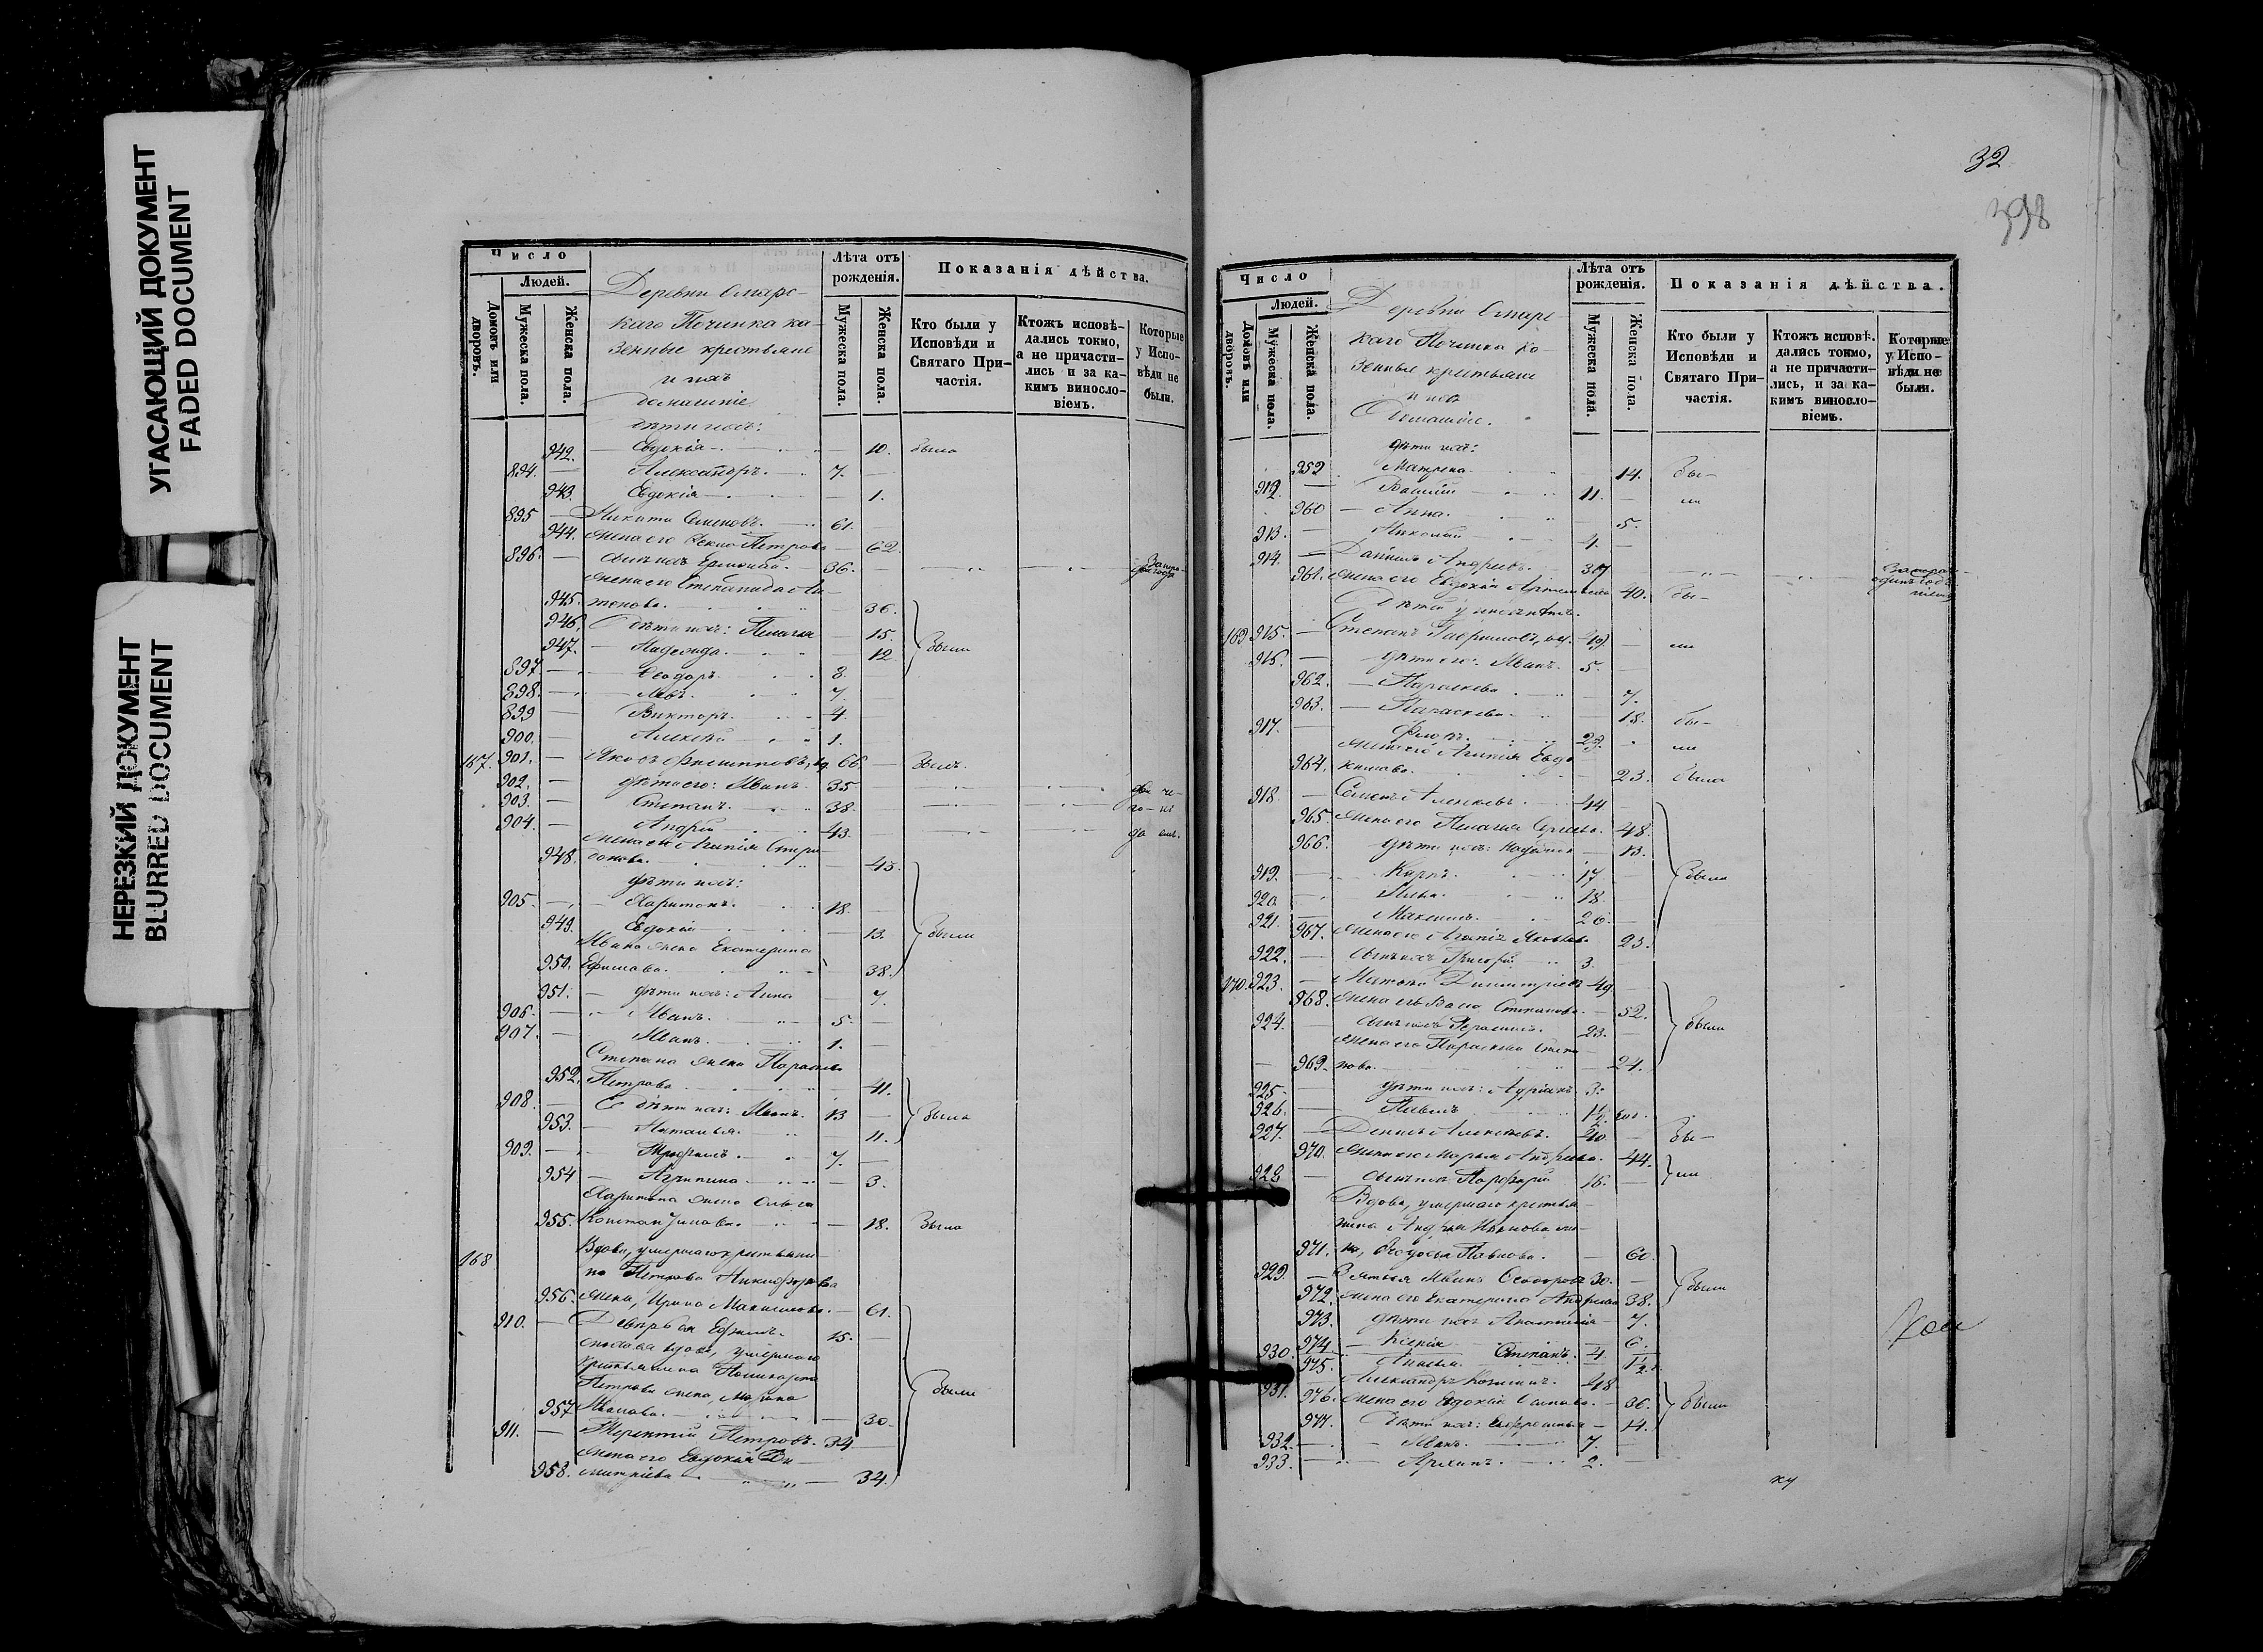 УГАСАЮЩИЙ ДОКУМЕНТ
FADED DOCUMENT
НЕРЕЗКИЙ ДОКУМЕНТ
BLURRED DOCUMENT
Число
Людей.
Домовъ или дворовъ.
Мужеска пола.
Женска пола.
Деревни Омарс-
каго Починка ка-
зенные крестьяне
и ихъ
домашніе
дѣти ихъ:
Лѣта отъ рожденія.
Мужеска пола.
Женска пола.
Показанія дѣйства.
Кто были у Исповѣди и Святаго Причастія.
Ктожъ исповѣдались токмо, а не причастились и за какимъ винословіемъ.
Которые у Исповѣди не были.
942. Евдокія 10. была
894. Александръ 7.
943. Евдокія 1.
895 Никита Семеновъ. 61.
944. жена его Текла Петрова 62.
896. сынъ ихъ Ермолай 36.
жена его Степанида
945. 36.
946. дѣти ихъ: Пелагія 15.
947. Надежда. 12 были
897. Ѳеодоръ. 8.
898. Левъ. 7.
899 Викторъ. 4.
900. Алексѣй 1.
167. 901. Яковъ Филипповъ, вд. 66. былъ.
902. дѣти его: Иванъ. 35
903. Степанъ. 38.
904. Андрей 43.
жена его Агапія Спири-
948. донова. 45.
дѣти ихъ:
905. Харитонъ. 18.
949. Евдокія 13. были
Ивана жена Екатерина
950. Ефимова. 38.
951. дѣти ихъ: Анна 7.
906. Иванъ. 5.
907. Иванъ. 1.
Степана жена Параскева
952. Петрова 41.
908. дѣти ихъ: Иванъ. 13
953. Наталья. 11. были
909. Трофимъ. 7.
954 Агрипина 3.
Харитона жена Ольга
955. Константинова. 18. была
168 Вдова, умершаго крестьяни-
на Петрова Никифорова
956. жена, Ирина Максимова. 61.
910. Ефимъ. 15.
вдова, умершаго
крестьянина Поликарпа
Петрова жена, Марина
957 Иванова. 30. были
911. Терентій Петровъ. 34
жена его Евдокія Ди-
958. митріева 34.
32
398
Число
Людей.
Домовъ или дворовъ.
Мужеска пола.
Женска пола.
Деревни Омарс-
каго Починка ка-
зенные крестьяне
и ихъ
домашніе.
дѣти ихъ:
Лѣта отъ рожденія.
Мужеска пола.
Женска пола.
Показанія дѣйства.
Кто были у Исповѣди и Святаго Причастія.
Ктожъ исповѣдались токмо, а не причастились, и за какимъ винословіемъ.
Которые у Исповѣди не были.
959 Матрена 14. бы-
912. Василій 11. ли
960 Анна. 5.
913. Николай 4.
914. Даніилъ Андреевъ. 37
961. жена его Евдокія Артемьева 40. бы-
169 915. Степанъ Гавриловъ, вд. 49. ли
916. дѣти его: Иванъ. 5.
962. Параскева 7.
963. Параскева 18. бы-
917. Флоръ. 23. ли
жена его Агапія Евдо-
964. кимова. 23. была
918. Семенъ Алексѣевъ 44
965. жена его Пелагія Сергѣева. 48.
966. дѣти ихъ: Надежда 13.
919. Карпъ. 17 были
920. Илья. 18.
921. Максимъ. 26.
967. жена его Агапія Яковлева 23.
922. сынъ ихъ Григорій 3.
170. 923. Димитріевъ 49
968. жена его Васса Степанова. 52.
924. сынъ ихъ Герасимъ. 23. были
жена его Параскева Степа-
969. нова. 24.
925. дѣти ихъ: Адріанъ. 3.
926. Павелъ 1/2
927. Денисъ Алексѣевъ. 40. бы-
970. жена его Марья Андреева. 44.
928 сынъ ихъ Порфирій 16. ли
Вдова, умершаго крестья-
нина Андрея Иванова же-
971. на, Ѳедосья Павлова. 60.
929. Зятья Иванъ Ѳеодоровъ 30.
972. жена его Екатерина Андреева 38. были
973. дѣти ихъ Анастасія 7.
974. Ксенія 6.
930. Степанъ. 4
975. Анисья. 1 1/2.
931. Александръ Козминъ. 48
976. жена его Евдокія 36. были
977. дѣти ихъ: Евфросинья 14.
932. Иванъ. 7.
933. Архипъ. 2.
ку